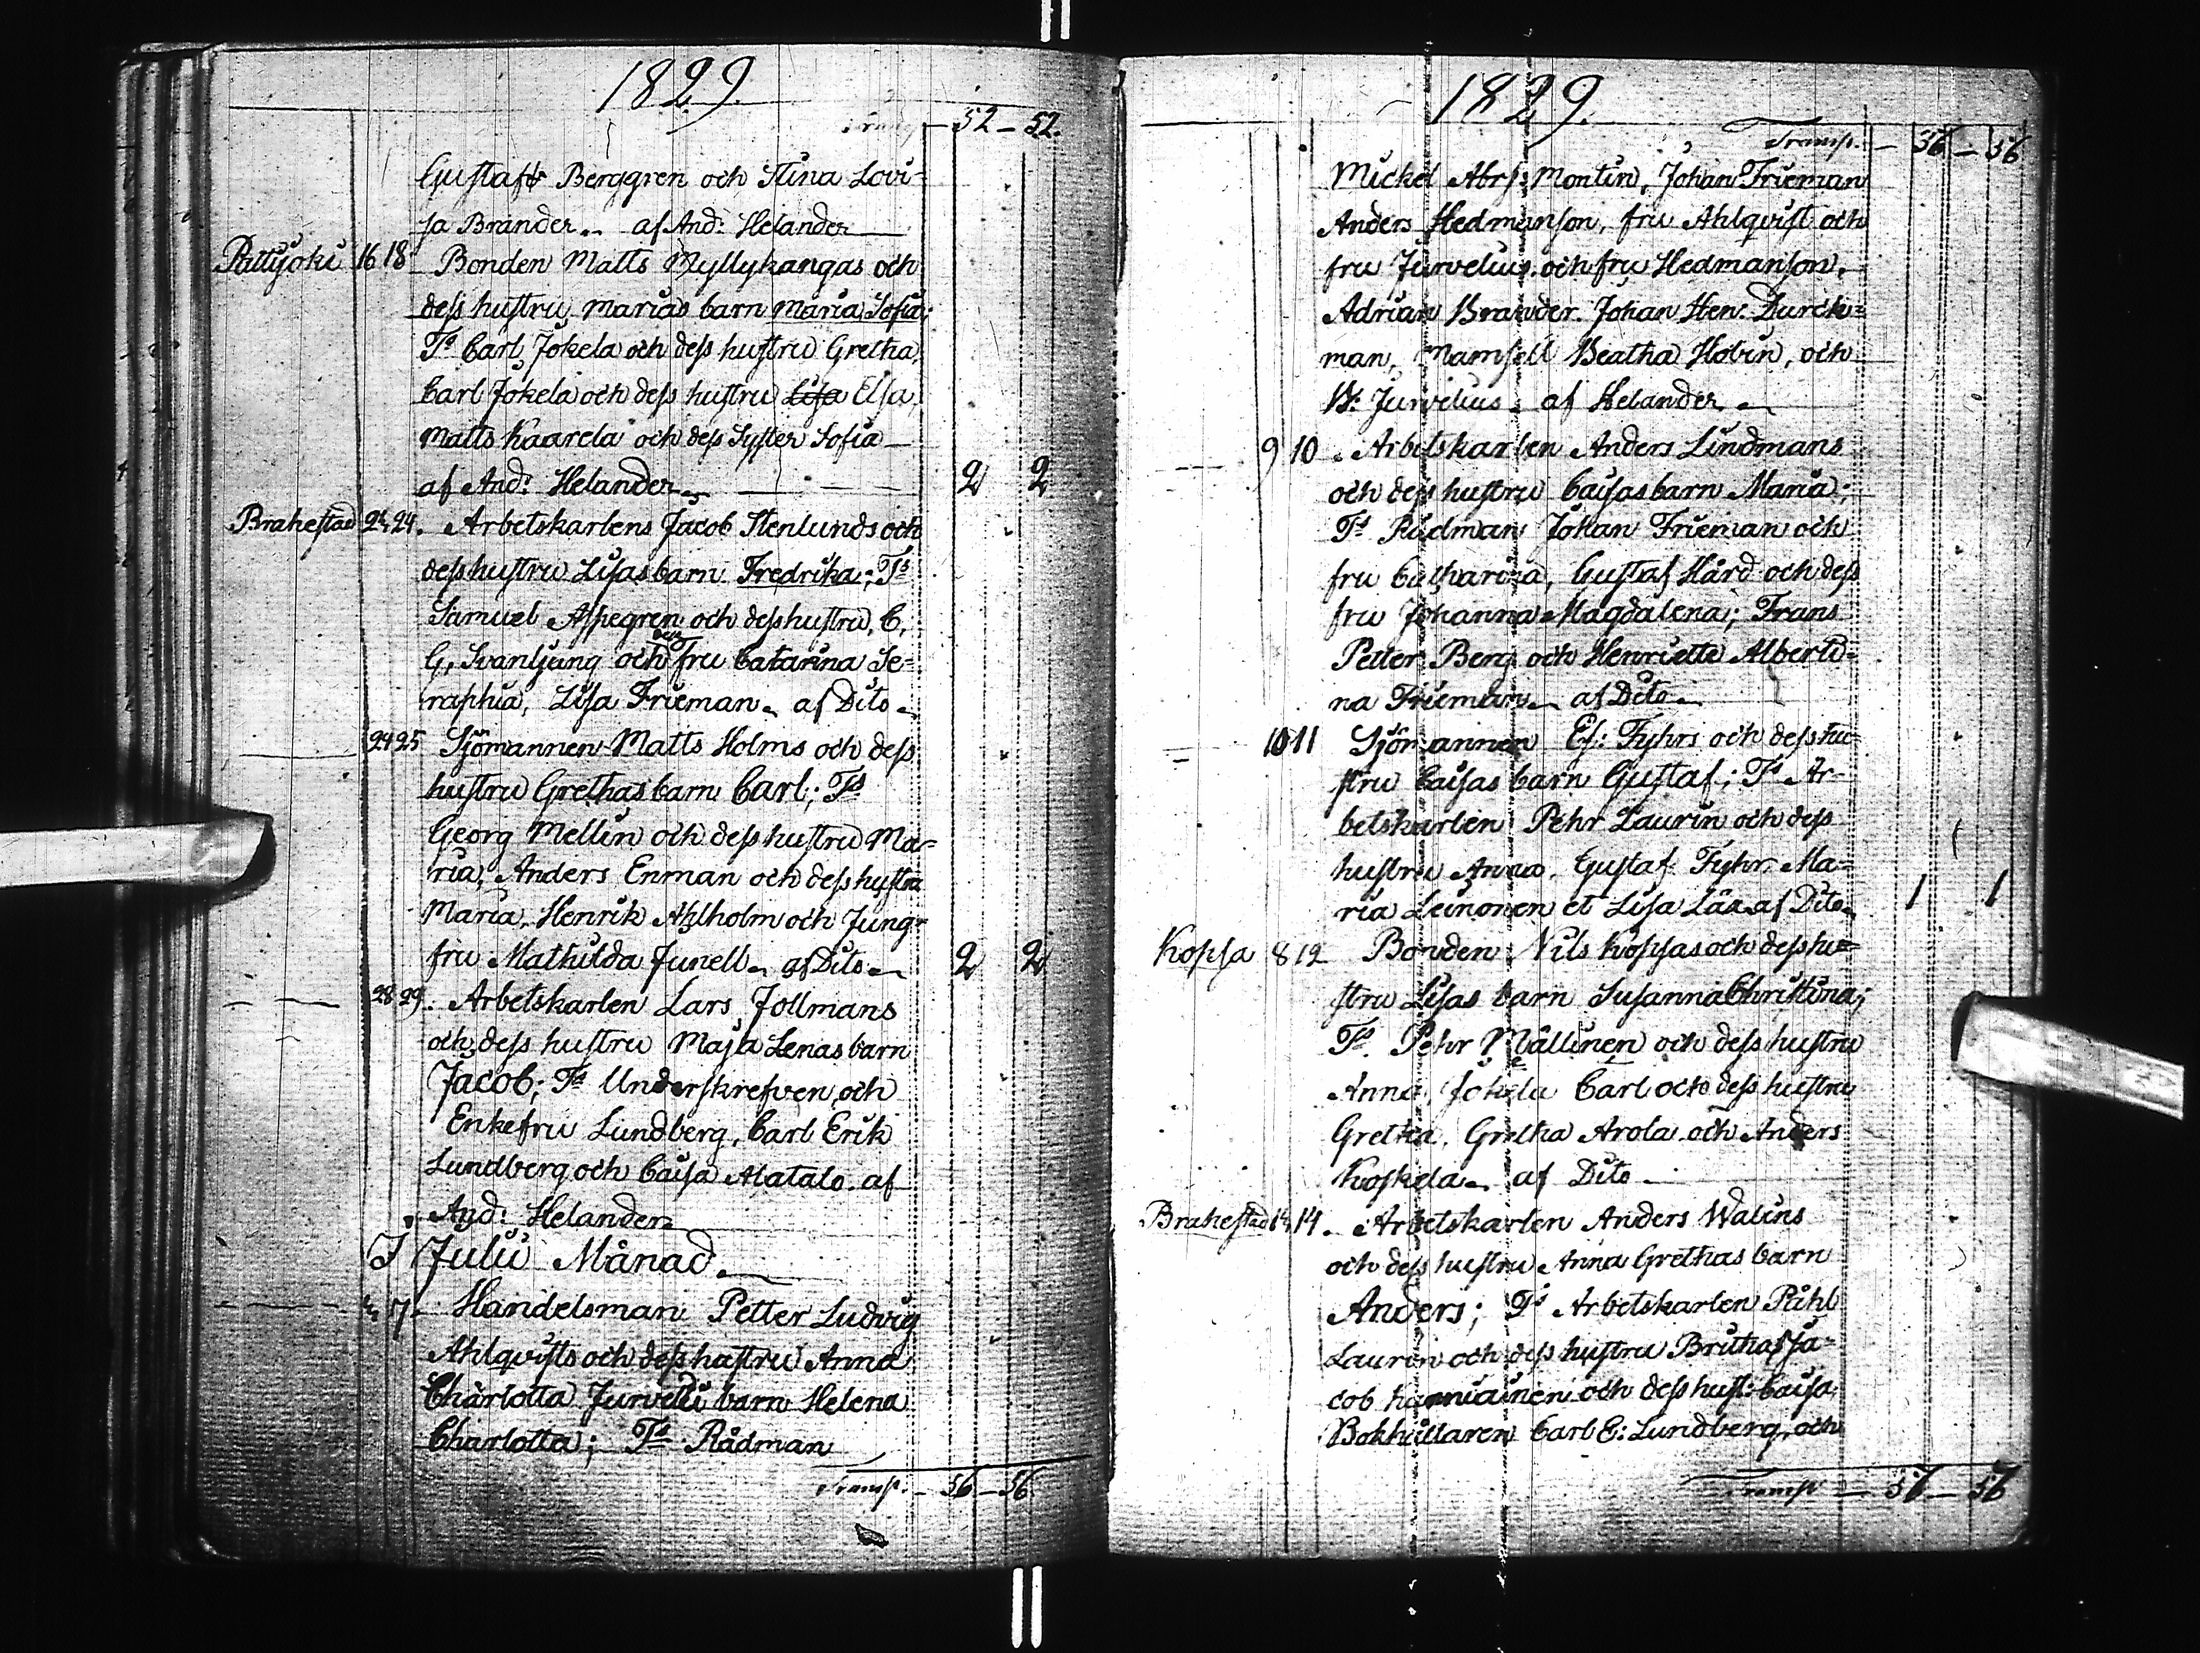 1829.
Transp. - 52 - 52.
Gustaf Berggren och Stina Lovi-
sa Brander. af And: Helander
Pattijoki 16 18 Bonden Matts Myllykangas och
dess hustru Marias barn Maria Sofia;
Ts Carl Jokela och dess hustru Gretha,
Carl Jokela och dess hustru Lisa Elsa,
Matts Kaarela och dess Syster Sofia
af And: Helander 2 2
Brahestad 24 24. Arbetskarlens Jacob Stenlunds och
dess hustru Lisas barn Fredrika; Ts
Samuel Aspegren och dess hustru, C.
G. Svanljung och dess fru Catarina Se-
raphia, Lisa Frieman. af Dito
24 25 Sjömannen Matts Holms och dess
hustru Grethas barn Carl; Ts
Georg Mellin och dess hustru Ma-
ria, Anders Enman och dess hustru
Maria, Henrik Ahlholm och Jung-
fru Mathilda Junell. af Dito 2 2
28 29. Arbetskarlen Lars Jollmans
och dess hustru Maja Lenas barn
Jacob; Ts Underskrefven, och
Enkefru Lundberg, Carl Erik
Lundberg och Caisa Alatalo. af
And: Helander
J Julii Månad.
7 Handelsman Petter Ludvig
Ahlqvists och dess hustru Anna
Charlotta Jurvelii barn Helena
Charlotta; Ts Rådman
Transp. - 56 - 56
1829.
Transp. - 56 - 56
Mickel Abrs: Montin, Johan Frieman
Anders Hedmanson, fru Ahlqvist och
fru Jurvelius och fru Hedmanson,
Adrian Brander. Johan Hen: Durck-
man, Mamsell Beatha Hobin, och
B: Jurvelius af Helander
9 10. Arbetskarlen Anders Lindmans
och dess hustru Caisas barn Maria;
Ts Rådman Johan Frieman och
fru Catharina, Gustaf Hård och dess
fru Johanna Magdalena; Frans
Petter Berg och Henriette Alberti-
na Frieman af Dito
10 11 Sjömannen Es: Fyhrs och dess hu-
stru Caisas barn Gustaf; Ts Ar-
betskarlen Pehr Laurin och dess
hustru Anna. Gustaf Fyhr, Ma-
ria Leinonen et Lisa Lää. af Dito 1 1
Kopsa 8 12 Bonden Nils Kopsas och dess hu-
stru Lisas barn Susanna Christina;
Ts. Pehr Mällinen och dess hustru
Anna, Jokela Carl och dess hustru
Gretha, Gretha Arola och Anders
Koskela. af Dito
Brahestad 14 14. Arbetskarlen Anders Walins
och dess hustru Anna Grethas barn
Anders; Ts Arbetskarlen Påhl
Laurin och dess hustru Britha, Ja-
cob och dess hust: Caisa,
Bokhållaren Carl E: Lundberg, och
Transp - 57 - 57